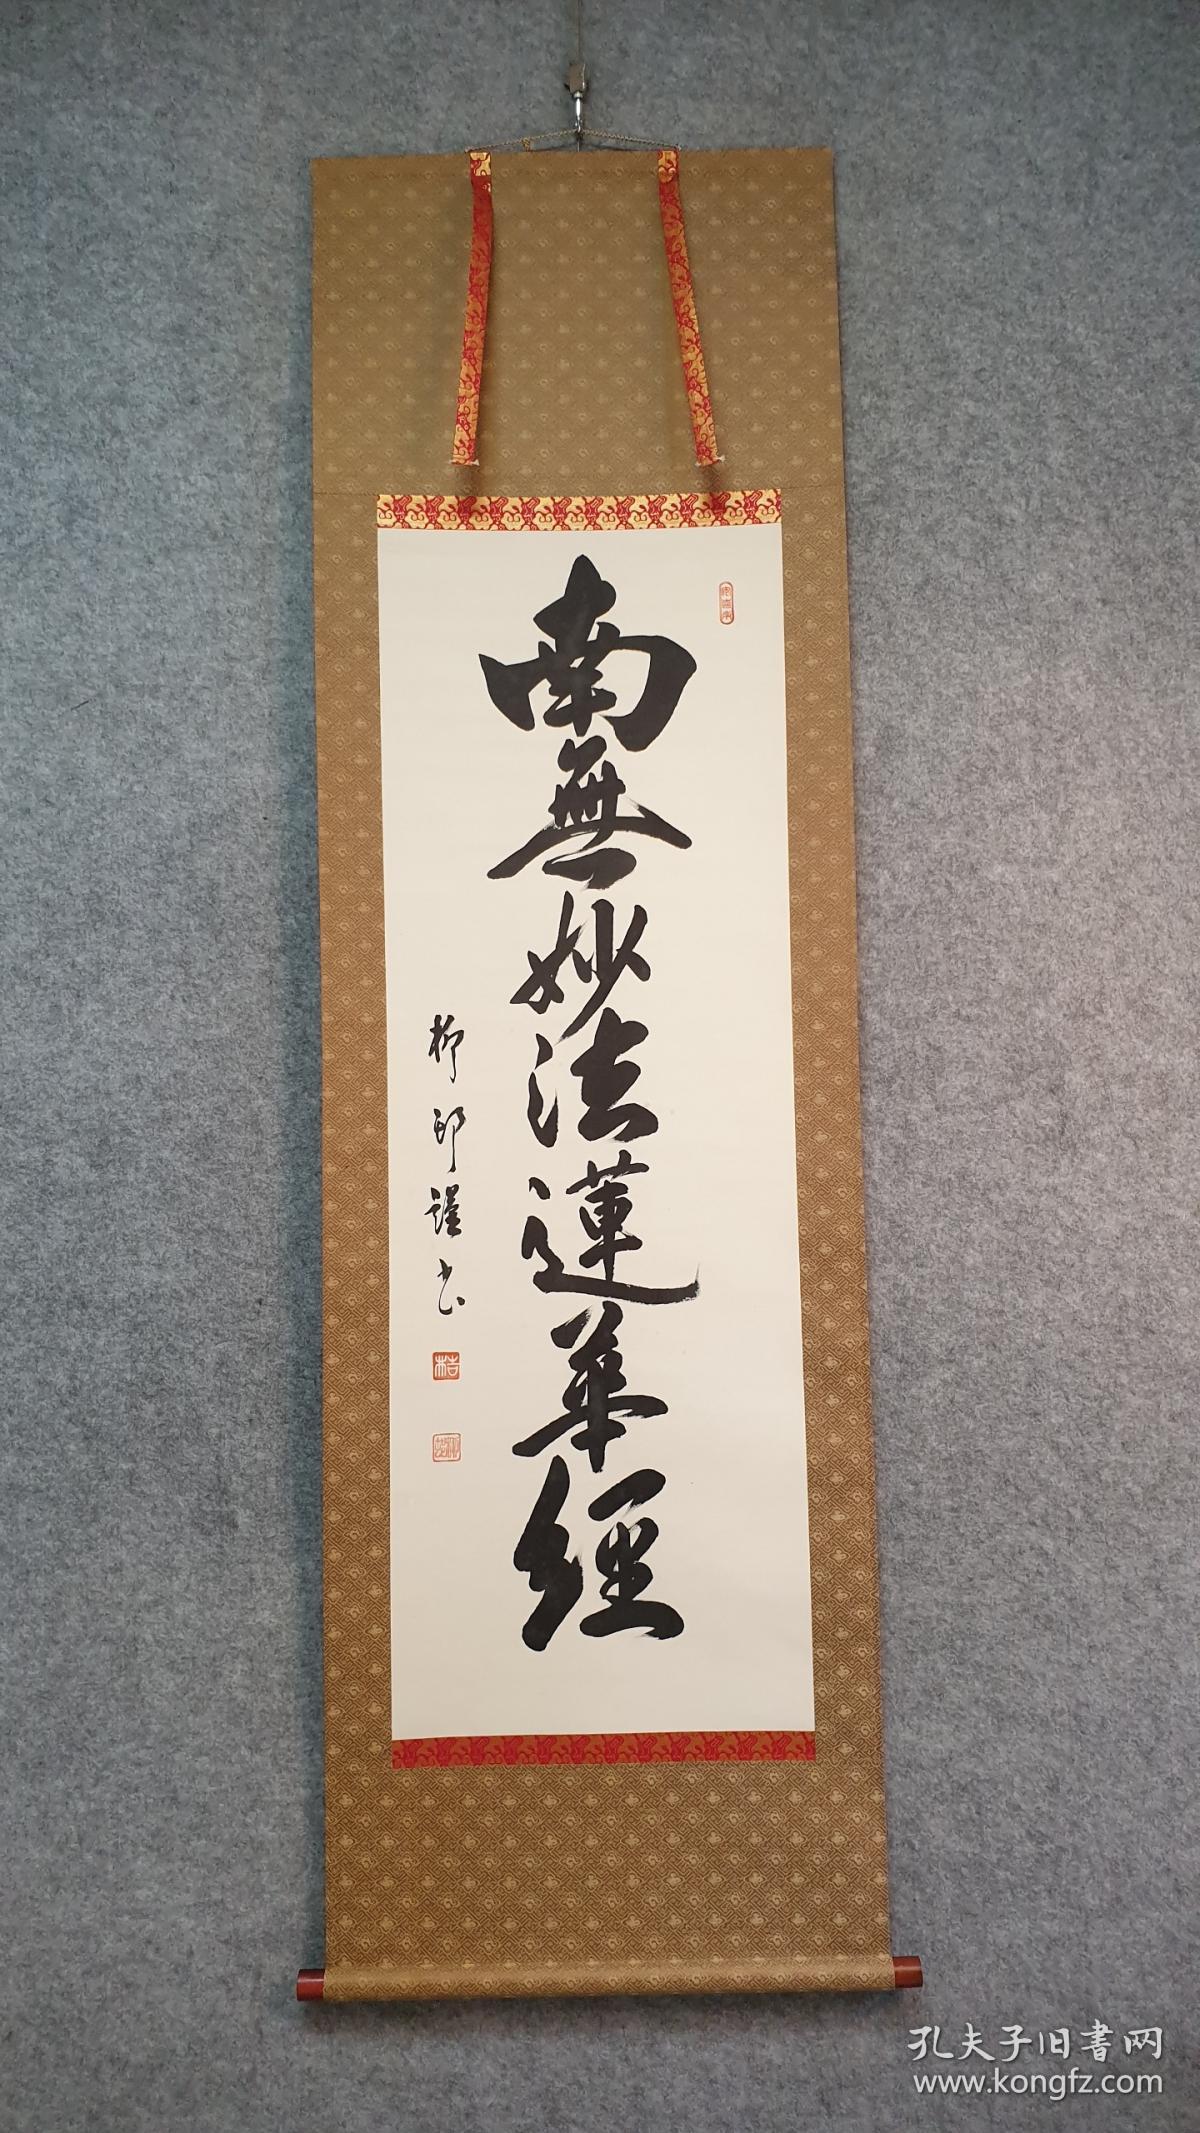 南無妙法蓮華經
柳邨謹书
孔夫子旧書网
www.kongfz.com